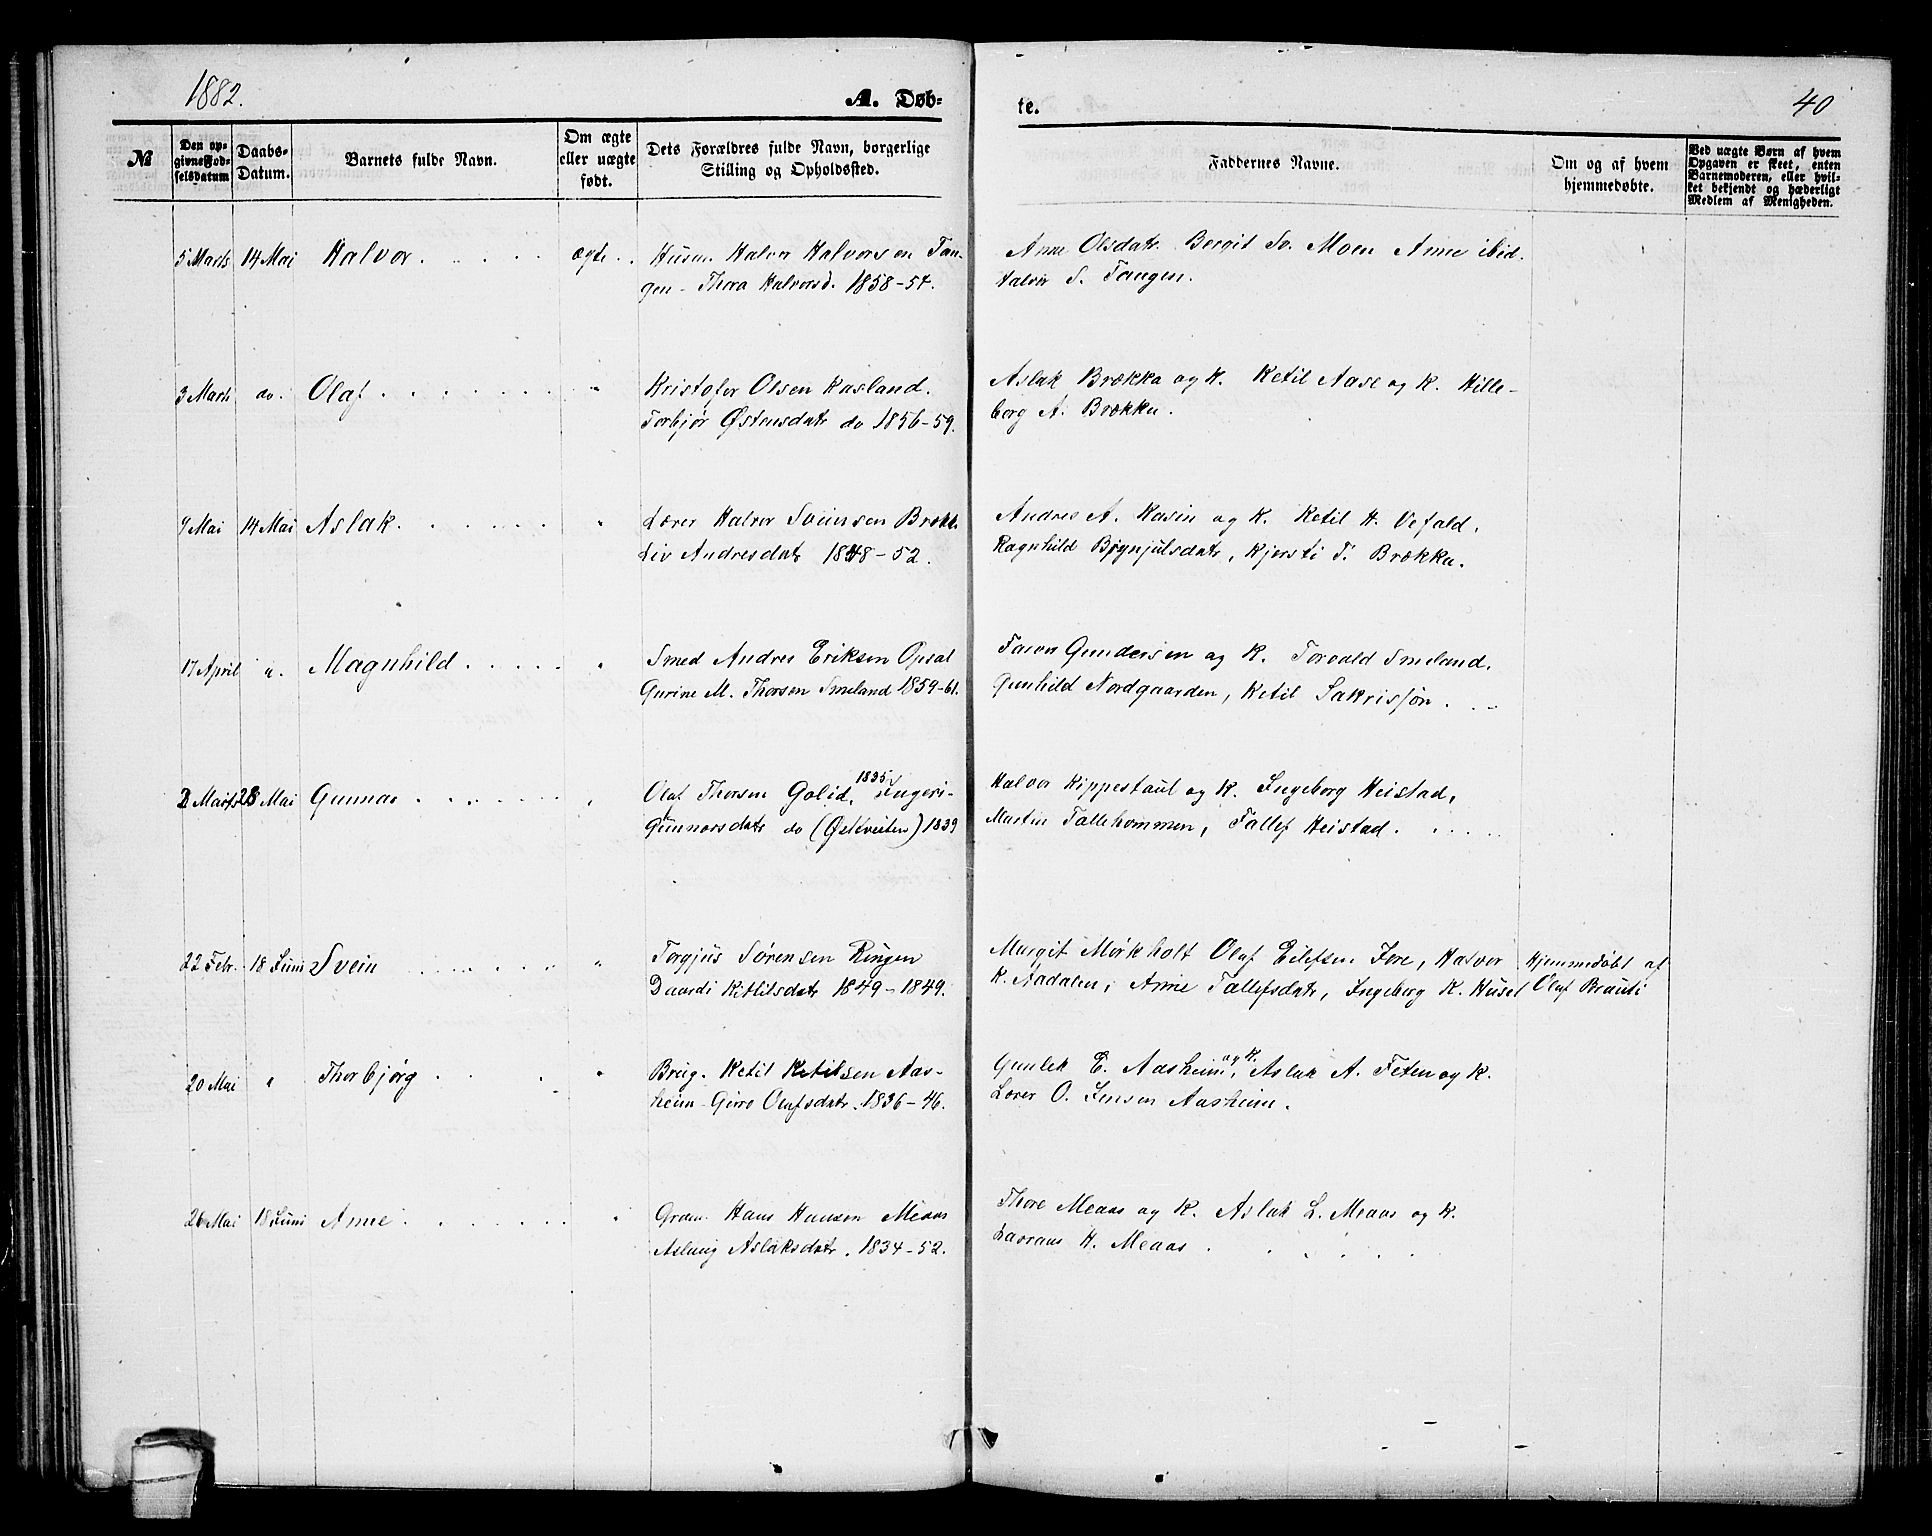 1882.
A. Døb-
te.
40
№
Den op-
givne Fød-
selsdatum
Daabs-
Datum.
Barnets fulde Navn.
Om ægte
eller uægte
født.
Dets Forældres fulde Navn, borgerlige
Stilling og Opholdssted.
Faddernes Navne.
Om og af hvem
hjemmedøbte.
Ved uægte Børn af hvem
Opgaven er skeet, enten
Barnemoderen, eller hvil-
ket bekjendt og hæderligt
Medlem af Menigheden.
5 Marts 14 Mai Halvor. ægte. Husm. Halvor Halvorsen Tan-
gen - Thora Halvorsd. 1858-54.
Anne Olsdatr. Bergit Sv. Moen Anne ibid.
Halvor S. Tangen.
3 Marts do. Olaf " Kristofer Olsen Hasland.
Torbjør Østensdatr do 1856-59.
Aslak Brækka og K. Ketil Aase og K. Hille-
borg A. Brækka.
9 Mai 14 Mai Aslak. " Lærer Halvor Sveinsen Brækk.
Liv Andresdatr 1848-52.
Andres A. Kasin og K. Ketil H. Vefald.
Ragnhild Bjynjulsdatr, Kjersti T. Brækka.
17 April ". Magnhild " Smed Andres Eriksen Opsal
Gurine M. Thorsen Smeland 1859-61.
Gundersen og K. Torvald Smeland.
Gunhild Nordgaarden, Ketil Sakrisjøn.
2 Marts 28 Mai Gunnar " Olaf Thorsen Golid, 1835 Ingeri-
Gunnarsdatr do (Østveiten) 1839
Halvor Kippestaul og K. Ingeborg Heistad,
Martin Tallehommen, Tallef Heistad.
22 Febr. 18 Juni Svein " Torgjus Sørensen Ringen
Daardi Kittilsdatr 1849-1849.
Margit Mørkholt Olaf Eilefsen Fore, Halvor
K. Aadalen, Anne Tallefsdatr, Ingeborg K. Husel
Hjemmedøbt af
Olaf Brauti
20 Mai " Thorbjørg " Brug. Ketil Ketilsen Aas-
heim - Gurro Olafsdatr. 1836-46.
Gunlek E. Aasheim og K., Aslak A. Feten og K.
Lærer O. Jensen Aasheim.
26 Mai 18 Juni Anne. " Hans Hansen Meaas
Aslaug Aslaksdatr. 1834-52.
Thore Meaas og K. Aslak L. Meaas og K.
Lavrans H. Meaas.